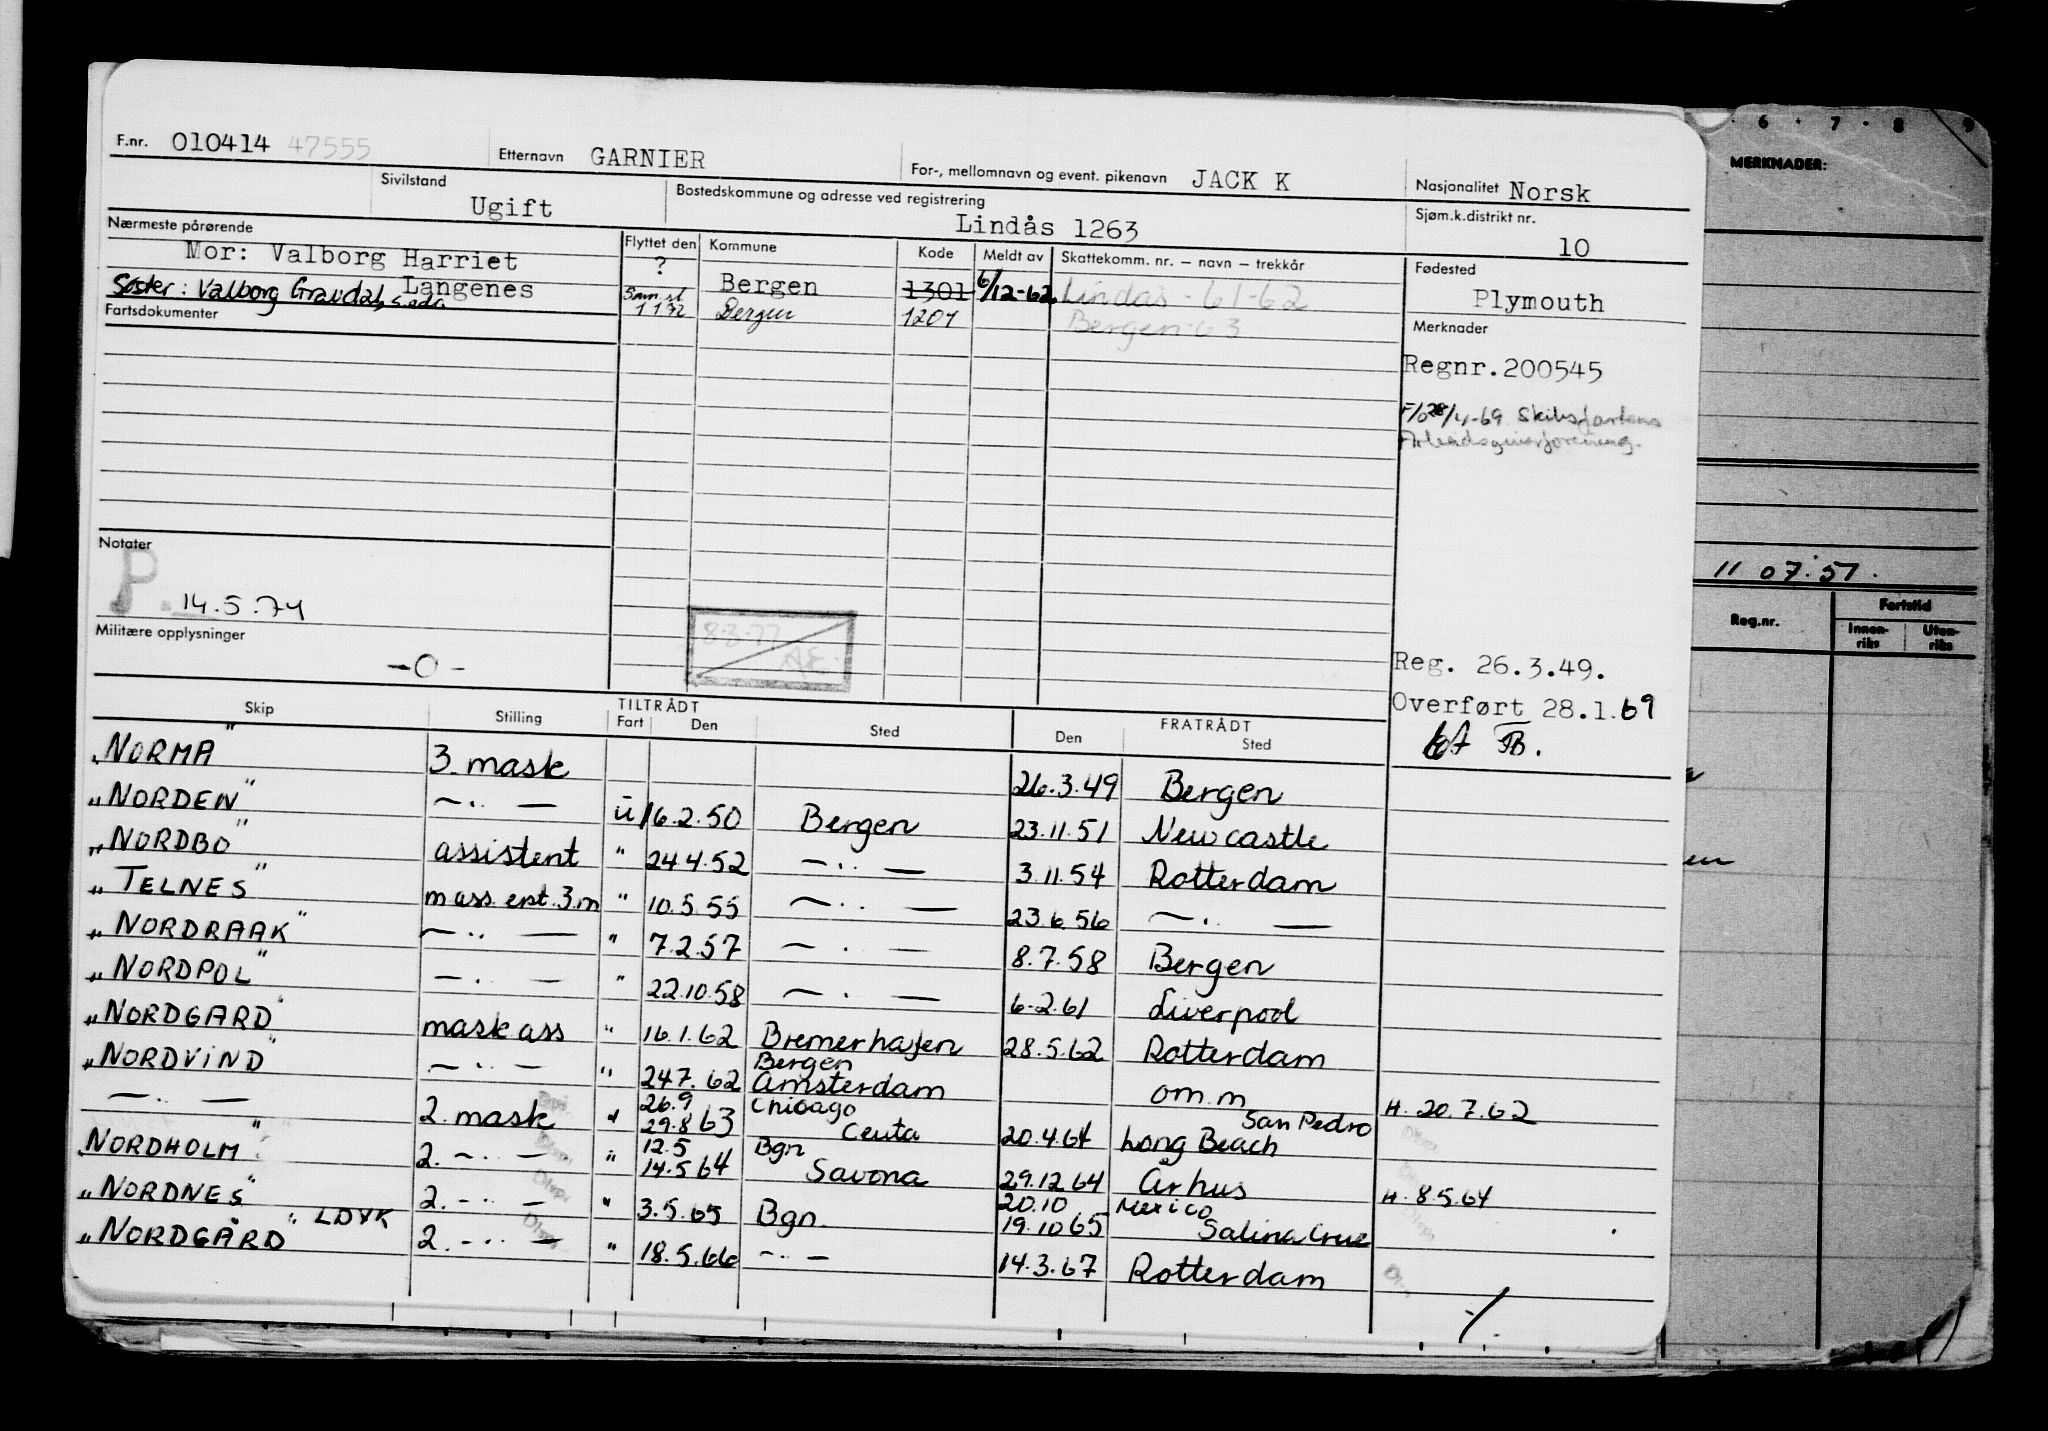 F.nr. 010414 47555 Etternavn GARNIER For-, mellomnavn og event. pikenavn JACK K Nasjonalitet Norsk
Sivilstand Ugift Bostedskommune og adresse ved registrering Lindås 1263 Sjøm.k.distrikt nr. 10
Nærmeste pårørende Flyttet den Kommune Kode Meldt av Skattekomm. nr. – navn – trekkår Fødested
Mor: Valborg Harriet Langenes ? Bergen 1301 6/12-62 Lindås - 61-62 Plymouth
Søster: Valborg Gravdal, s.eda. 1172 Bergen 1201 Bergen 63
Fartsdokumenter Merknader
Regnr. 200545
F/o 28/4-69 Skibsfartens
Arbeidsgiverforening.
Notater
P. 14.5.74
Militære opplysninger
-0-
8.3.77
AE.
Reg. 26.3.49.
Overført 28.1.69
Skip Stilling TILTRÅDT Fart Den Sted FRATRÅDT Den Sted
"NORMA" 3. mask 26.3.49 Bergen
"NORDEN" -..- u 16.2.50 Bergen 23.11.51 Newcastle
"NORDBO" assistent " 24.4.52 -..- 3.11.54 Rotterdam
"TELNES" mass. erst. 3.m " 10.5.55 -..- 23.6.56 -..-
"NORDRAAK" -..- " 7.2.57 -..- 8.7.58 Bergen
"NORDPOL" -..- " 22.10.58 -..- 6.2.61 Liverpool
"NORDGARD" mask ass " 16.1.62 Bremerhafen 28.5.62 Rotterdam
"NORDVIND" -..- " 24.7.62 Bergen Amsterdam om.m H. 20.7.62
-..- 2. mask " 26.9 29.8 63 Chicago Ceuta 20.4.64 San Pedro Long Beach
"NORDHOLM" 2. -..- " 12.5 14.5 64 Bgn Savona 29.12.64 Århus H. 8.5.64
"NORDNES" 2. -..- " 3.5.65 Bgn. 20.10 19.10 65 Mexico Salina Cruz
"NORDGÅRD" LDVK 2. -..- " 18.5.66 -..- 14.3.67 Rotterdam
./.
6 7 8 9
MERKNADER:
11 07.51.
Reg.nr. Fartstid
Innen-riks Uten-riks